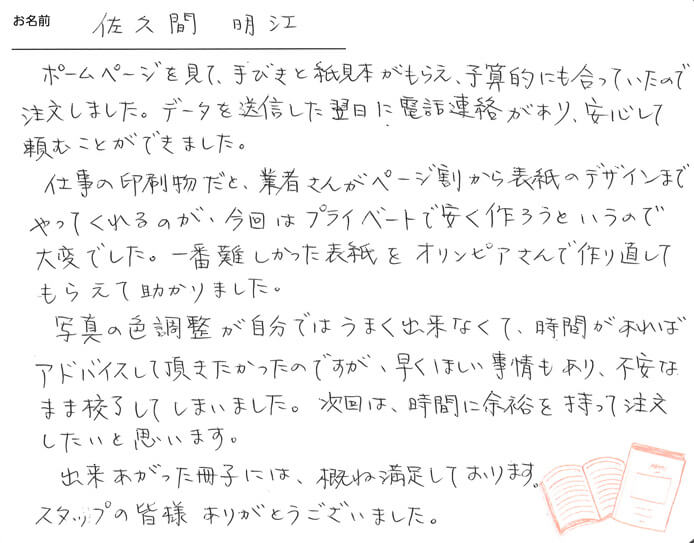 お名前 佐久間 明江
ホームページを見て、手びきと紙見本がもらえ、予算的にも合っていたので
注文しました。データを送信した翌日に電話連絡があり、安心して
頼むことができました。
仕事の印刷物だと、業者さんがページ割から表紙のデザインまで
やってくれるのが、今回はプライベートで安く作ろうというので
大変でした。一番難しかった表紙をオリンピアさんで作り直して
もらえて助かりました。
写真の色調整が自分ではうまく出来なくて、時間があれば
アドバイスして頂きたかったのですが、早くほしい事情もあり、不安な
まま校了してしまいました。次回は、時間に余裕を持って注文
したいと思います。
出来あがった冊子には、概ね満足しております。
スタップの皆様ありがとうございました。